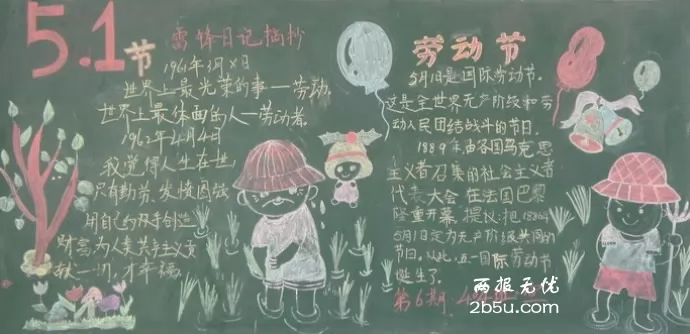 5.1节
雷锋日记摘抄
1961年3月X日
世界上最光荣的事—劳动.
世界上最体面的人—劳动者.
1962年4月4日
我觉得人生在世,
只有勤劳、发愤图强
用自己的双手创造
财富,为人类共产主义贡
献一切,才幸福.
劳动节
5月1日是国际劳动节.
这是全世界无产阶级和劳
动人民团结战斗的节日.
1889年,由各国马克思
主义者召集的社会主义者
代表大会在法国巴黎
隆重开幕,提议:把1886年
5月1日定为无产阶级共同的
节日.从此,这一国际劳动节
诞生了.
第6期.
两报无忧
2b5u.com